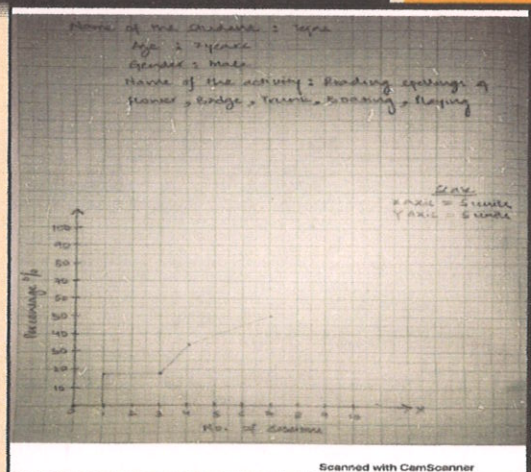 Name of the Student :
Age : 7 years
Gender : Male
Name of the activity : Reading spellings of
Flower, Badge, Trunk, Boating, Playing
Scale
X axis = 5 units
Y axis = 5 units
100
90
80
70
60
50
40
30
20
10
Percentage %
0 1 2 3 4 5 6 7 8 9 10 X
No. of sessions
Scanned with CamScanner